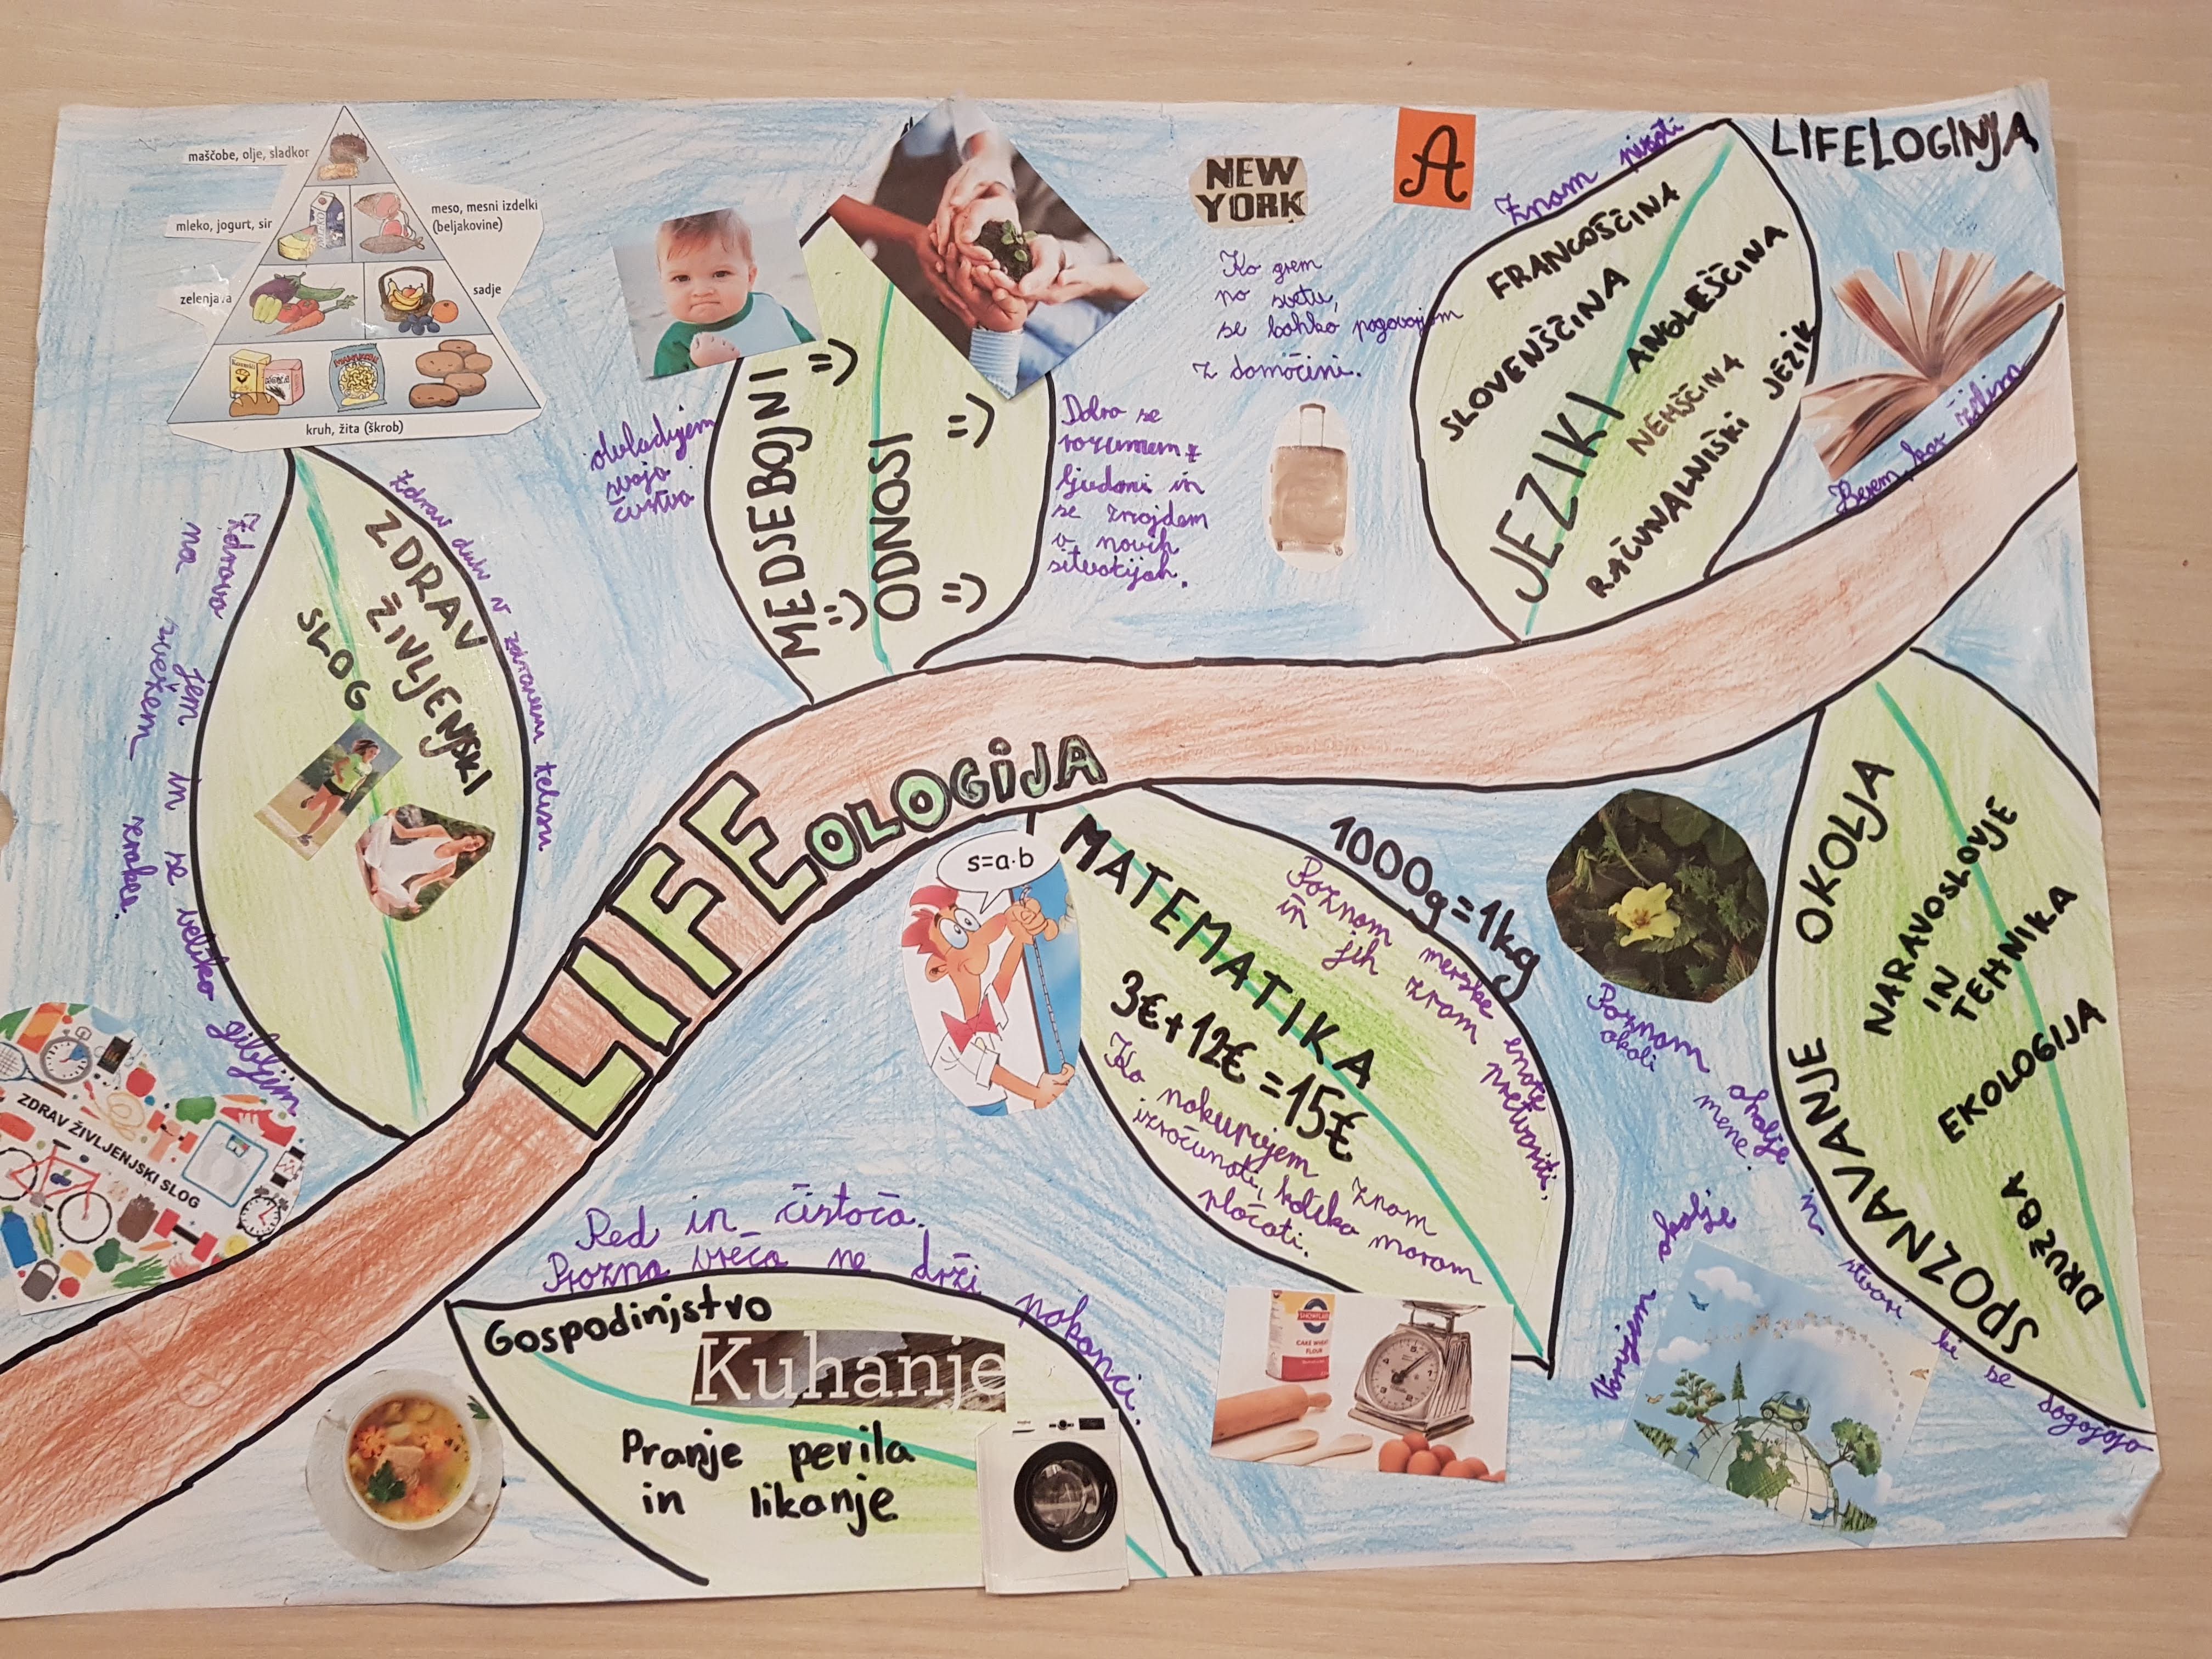 LIFELOGINJA
maščobe, olje, sladkor
mleko, jogurt, sir
meso, mesni izdelki
(beljakovine)
zelenjava
sadje
kruh, žita (škrob)
ZDRAV
ŽIVLJENJSKI
SLOG
Zdrav duh v zdravem telesu
Zdravo jem in se veliko gibljem
na svežem zraku.
ZDRAV ŽIVLJENJSKI SLOG
MEDSEBOJNI
ODNOSI
obvladujem
svoja
čustva
Dobro se
razumem z
ljudmi in
se znajdem
v novih
situacijah.
NEW
YORK
A
Ko grem
po svetu,
se lahko pogovorjam
z domačini.
Znam pisati
FRANCOŠČINA
SLOVENŠČINA
ANGLEŠČINA
JEZIKI
NEMŠČINA
RAČUNALNIŠKI JEZIK
Berem kar želim
LIFEOLOGIJA
s=a·b
MATEMATIKA
1000g=1kg
Poznam merske enote
in jih znam pretvoriti.
3€+12€=15€
Ko nakupujem znam
izračunati, koliko moram
plačati.
SPOZNAVANJE OKOLJA
NARAVOSLOVJE
IN
TEHNIKA
EKOLOGIJA
DRUŽBA
Poznam okolje
okoli mene.
Varujem okolje in stvari ki se dogajajo
Red in čistoča.
Prazna vreča ne drži pokonci.
Gospodinjstvo
Kuhanje
Pranje perila
in likanje
CAKE WHEAT
FLOUR